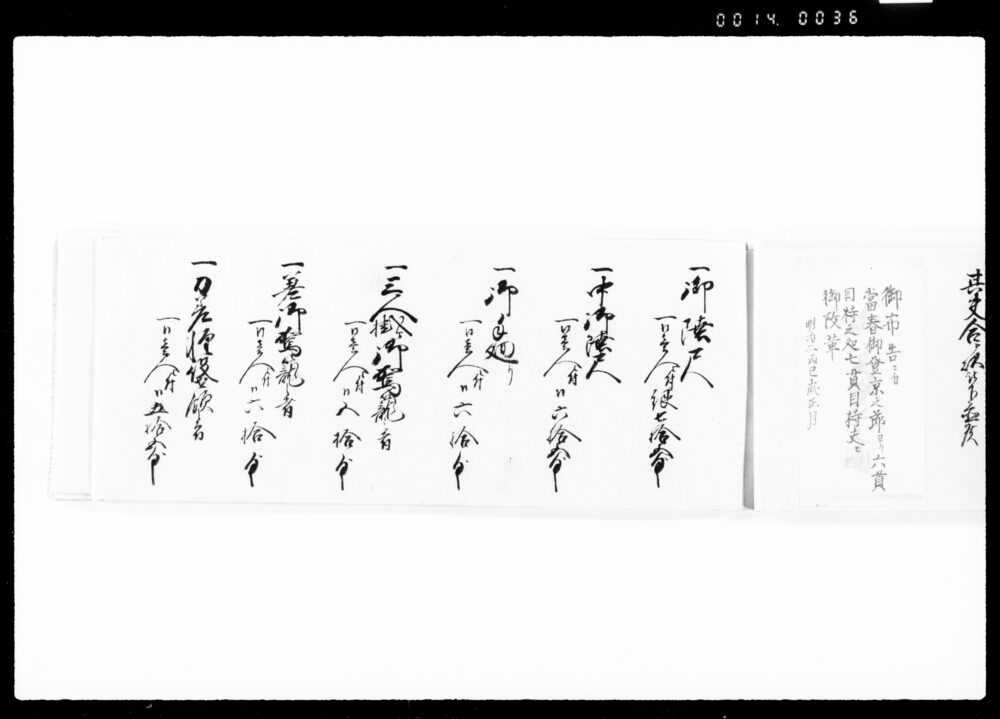 0014. 0036
御布告ニ付
當春御登京之節ヨリ六貫
目持之処七貫目持丈ニ
御改革
明治二酉巳歳正月
一御陸尺
一日壱人ニ付銀七拾匁
一中御陸尺
一日壱人ニ付〃六拾匁
一御手廻り
一日壱人ニ付〃六拾匁
一三人掛御駕籠者
一日壱人ニ付〃八拾匁
一並御駕籠者
一日壱人ニ付〃六拾匁
一日壱人ニ付〃五拾匁